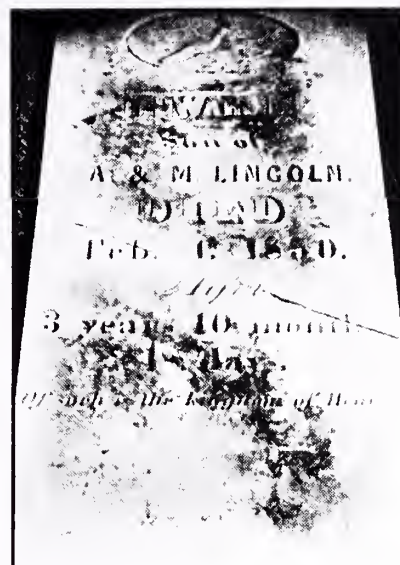 EDWARD
Son of
A. & M. LINCOLN.
DIED
Feb. 1. 1850.
Aged
3 years 10 months
18 days.
Of such is the kingdom of Heav